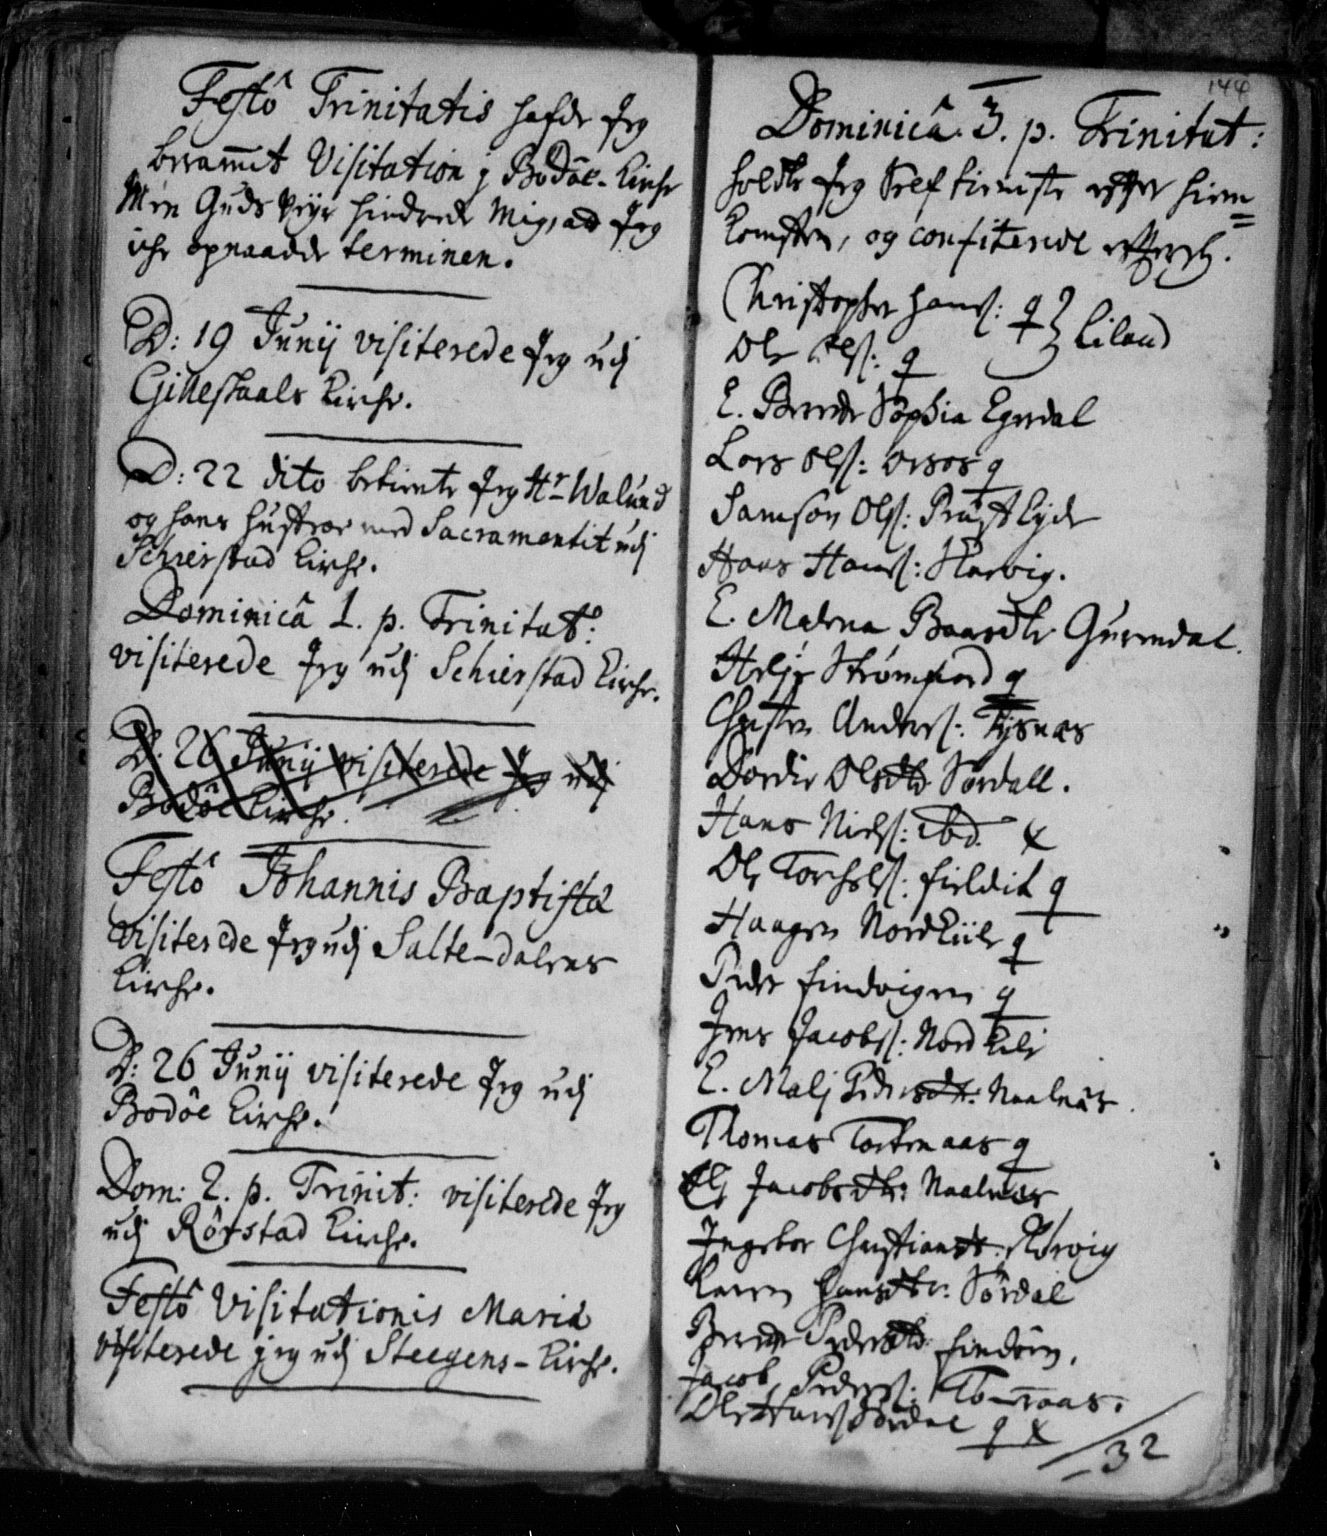 Festô Trinitatis hafde Jeg
berammet Visitation j Bodöe-Kirche
Men Guds Veyr hindrede Mig, at Jeg
iche opnaadde terminen.
D: 19 Junij visiterede Jeg udj
Gilleskaals Kirche.
D: 22 dito betiente Jeg Hr Walund
og hans hustroe med Sacramentet udj
Schierstad Kirche.
Dominicâ 1. p. Trinitat:
visiterede Jeg udj Schierstad Kirche.
D: 26 Junij visiterede Jeg udj
Bodöe Kirche.
Festô Johannis Baptistæ
visiterede Jeg udj Salte-dalens
Kirche.
D: 26 Junij visiterede Jeg udj
Bodöe Kirche.
Dom: 2. p. Trinit: visiterede Jeg
udj Rörstad Kirche.
Festô Visitationis Mariæ
visiterede jeg udj Steegens-Kirche.
144
Dominicâ. 3. p. Trinitat:
holdte Jeg Self tieniste efter hiem=
komsten, og confiterede
Christopher Hanss: q
Ole Olss: q
E. Berede Sophia Egerdal
Lars Olss: q
Samson Olss:
Hans Hanss:
E. Malena Baardtr
Helje Strømfiord q
Christen Anderss: Tysnæs
Dordie Olsdtr Sørdall.
Hans Nielss: ibd. x
Ole q
Haagen Nordkiil q
Peder Findvigen q
Jens Jacobss:
E. Malj Pedersdtr: Naalnæs
Thomas q
Jacobsdtr: Naalnæs
Ingebor Christiansdtr:
Karen Hansdtr: Sördal
Berede Pedersdtr
Jacob Pederss:
Ole Hanss Sördal q x
32